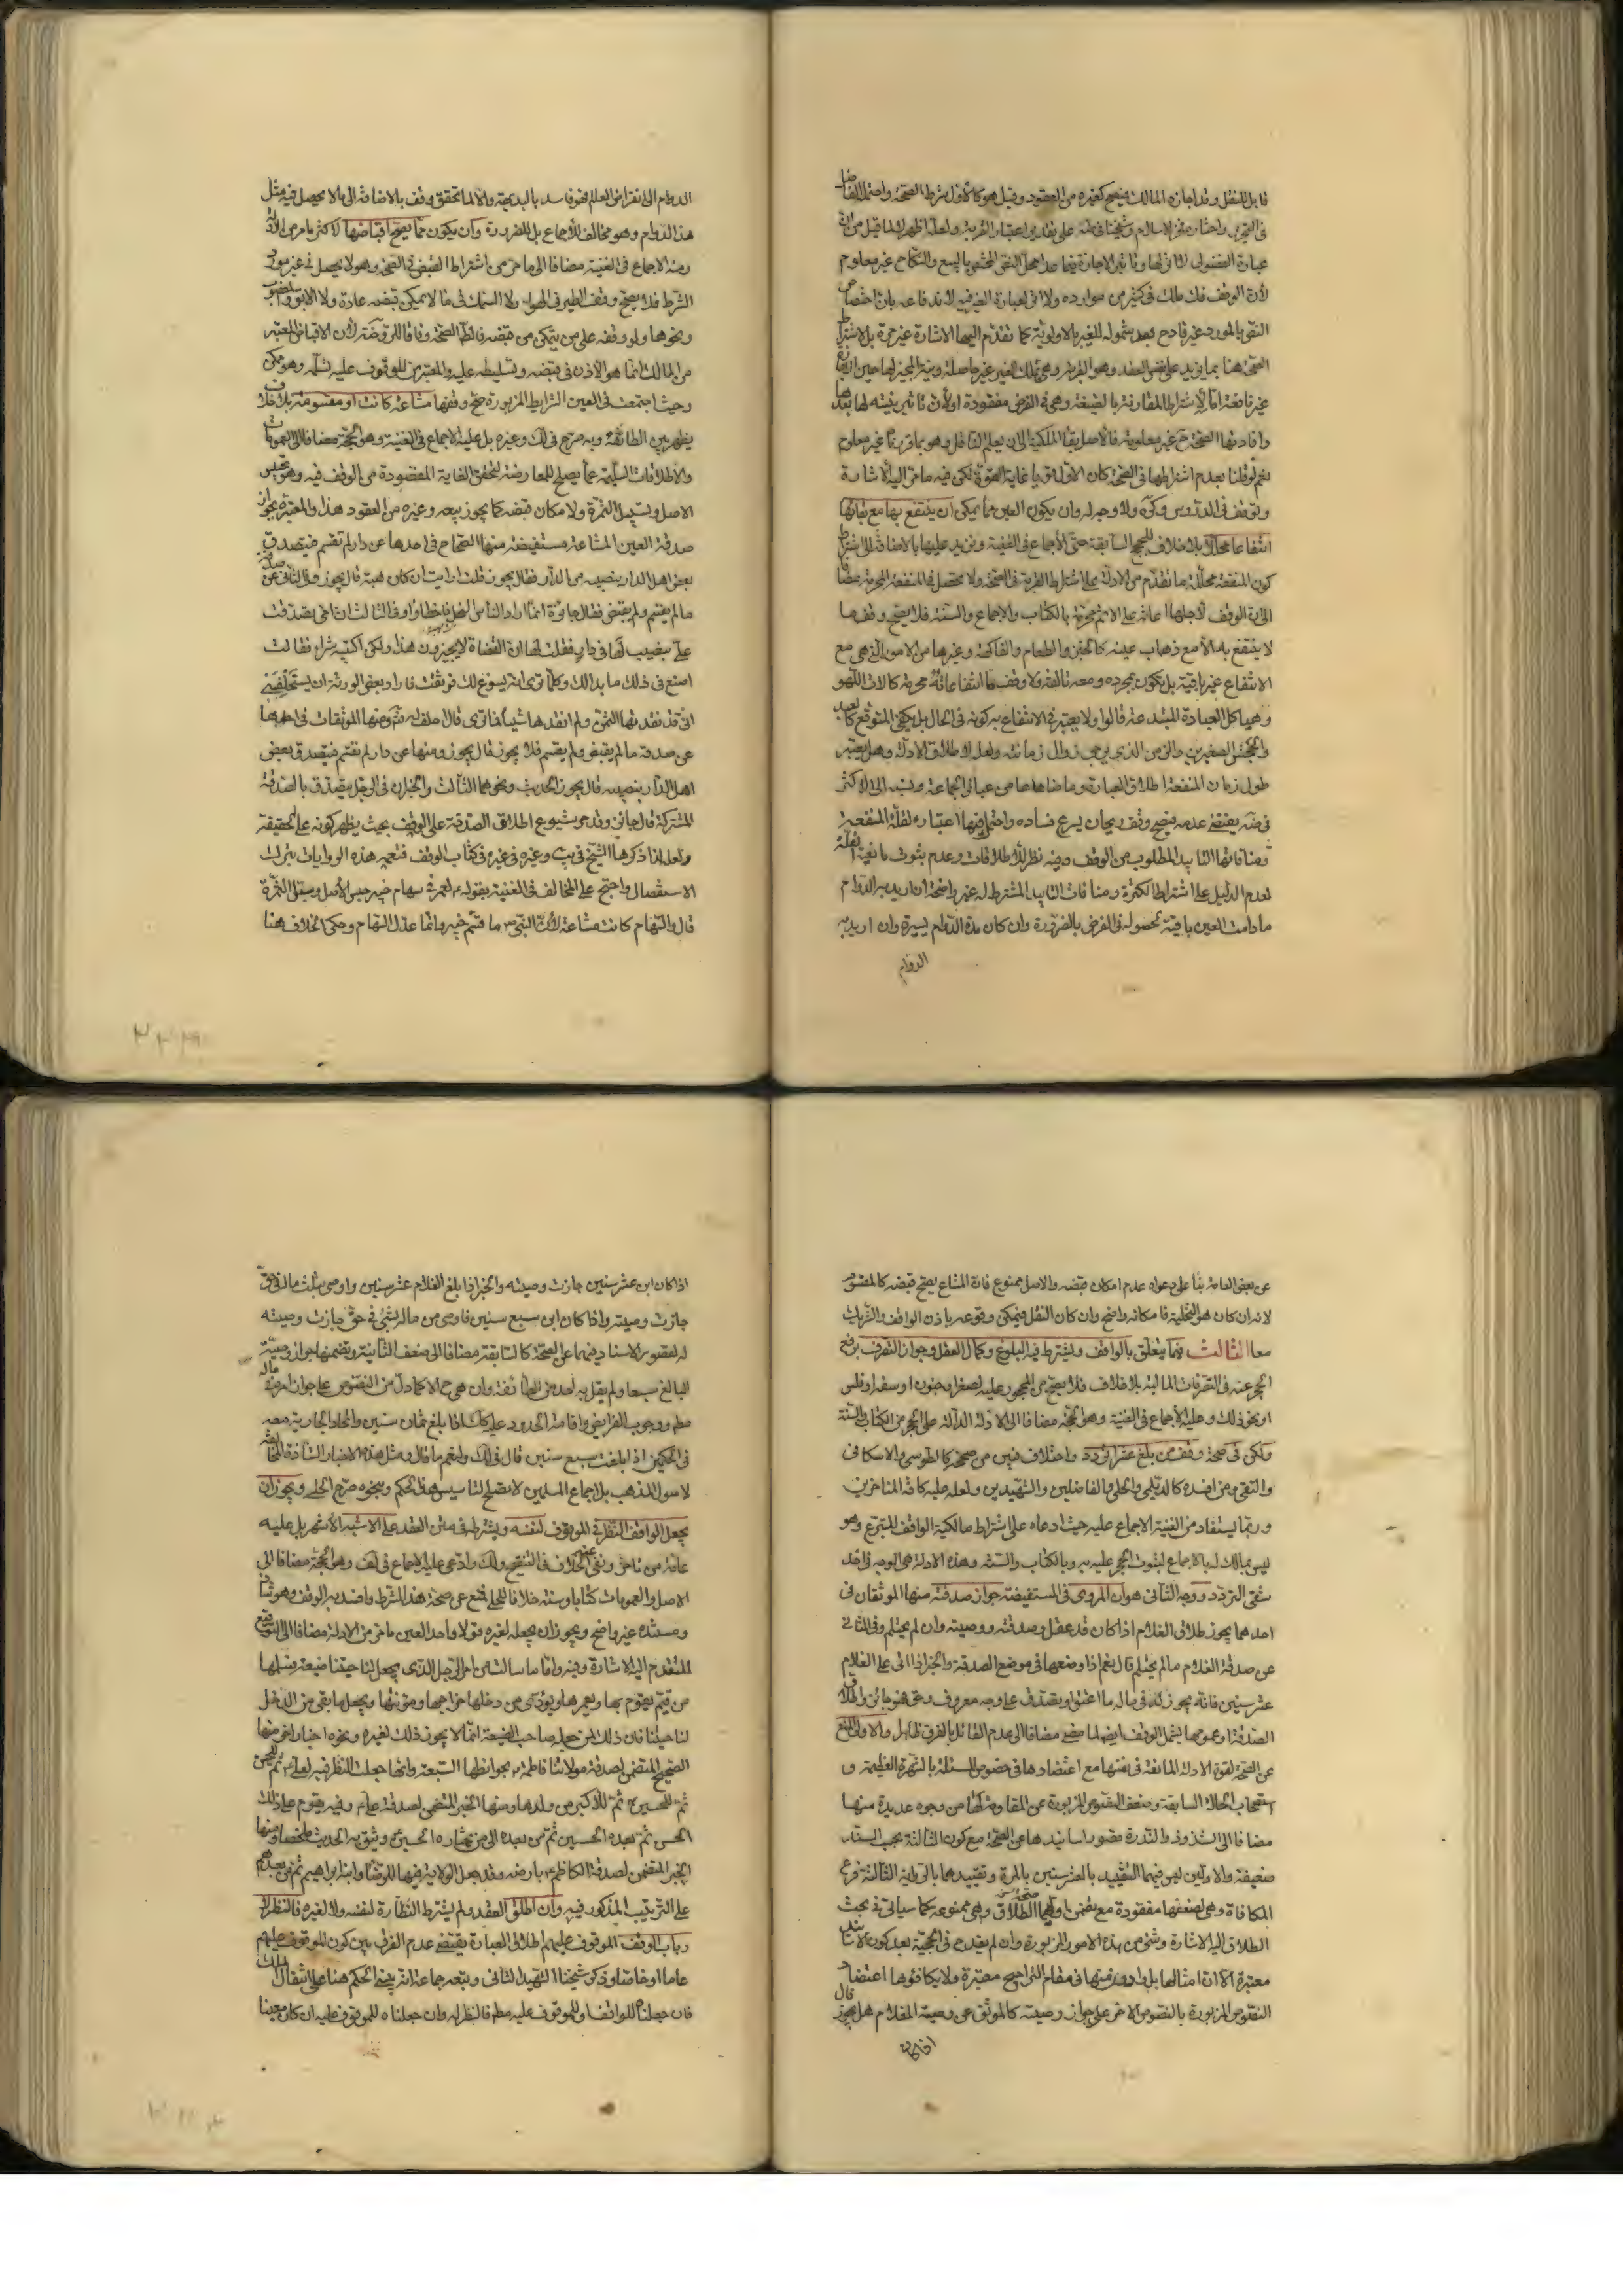 قابل للنقل وقد اجازه المالك فيصح كغيره من العقود وقيل هو كالاول بشرط الصحة واحتمله الفاضل
عبارة الفضولى لا اثر لها وتاثير الاجازة فيما عدا محل النص المختص بالبيع والنكاح غير معلوم
لان الوقف فك ملك فى كثير من موارده ولا اثر لعبارة الغير فيه لاندفاعه بان اختصاص
النص بالمورد غير قادح بعد شموله للغير بالاولوية كما تقدم اليها الاشارة
وافادتها الصحة ح غير معلومة فالاصل بقاء الملكية الى ان يعلم الناقل وهو بما قررنا غير معلوم
نعم لو قلنا بعدم اشتراطها فى الصحة كان الاول قويا غاية القوة لكن فيه ما مر اليه الاشارة
وان يكون العين مما يمكن ان ينتفع بها مع بقائها
انتفاعا محللا بلا خلاف للحجج السابقة حتى الاجماع فى الغنية ونزيد عليها بالاضافة الى اشتراط
كون المنفعة محللة ما تقدم من الادلة على اشتراط القربة فى الصحة ولا تحصل فى المنفعة المحرمة مضافا
الى ان الوقف لاجلها اعانة على الاثم محرمة بالكتاب والاجماع والسنة فلا يصح وقف ما
لا ينتفع به الا مع ذهاب عينه كالخبز والطعام والفاكهة وغيرها من الامور التى هى مع
الانتفاع غير باقية بل يكون بمجرده ومعه تالفة ولا وقف ما انتفاعاته محرمة كالات اللهو
وهياكل العبادة المبتدعة قالوا ولا يعتبر فى الانتفاع به كونه فى الحال بل يكفى المتوقع كالعبد
والجحش الصغيرين والزمن الذى يرجى زوال زمانته ولعله لاطلاق الادلة وهل يعتبر
طول زمان المنفعة اطلاق العبارة وما ضاهاها من عبائر الجماعة ونسب الى الاكثر
فى ضه يقتضى عدمه فيصح وقف ريحان يسرع فساده واحتمل فيها اعتباره لقلة المنفعة
ومنافاتها التابيد المطلوب من الوقف وفيه نظر للاطلاقات وعدم ثبوت مانعية القلة
لعدم الدليل على اشتراط الكثرة ومنافات التابيد المشترط له غير واضحة ان اريد به الدوام
ما دامت العين باقية لحصوله فى الفرض بالضرورة وان كان مدة الدوام يسيرة وان اريد به
الدوام
الدوام الى انقراض العالم فهو فاسد بالبديهة والا لما تحقق وقف بالاضافة الى ما لا يحصل فيه مثل
هذا الدوام وهو مخالف للاجماع بل للضرورة وان يكون مما يصح اقباضها لاكثر ما مر من الادلة
ومنه الاجماع فى الغنية مضافا الى ما مر من اشتراط القبض فى الصحة وهو لا يحصل فى غير مورد
الشرط فلا يصح وقف الطير فى الهواء ولا السمك فى ما لا يمكن قبضه عادة ولا الابق والمغصوب
ونحوها ولو وقفه على من يتمكن من قبضه فالظاهر الصحة وفاقا للروضة لان الاقباض المعتبر
من المالك انما هو الاذن فى قبضه وتسليطه عليه والمعتبر من الموقوف عليه تسلمه وهو ممكن
وحيث اجتمعت فى العين الشرايط المزبورة صح وقفها مشاعة كانت او مقسومة بلا خلاف
يظهر بين الطائفة وبه صرح فى لك وغيره بل عليه الاجماع فى الغنية وهو الحجة مضافا الى العمومات
والاطلاقات السليمة عما يصلح للمعارضة لتحقق الغاية المقصودة من الوقف فيه وهو تحبيس
الاصل وتسبيل الثمرة ولامكان قبضه كما يجوز بيعه وغيره من العقود هذا والمعتبرة بجواز
صدقة العين المشاعة مستفيضة منها الصحاح فى احدها عن دار لم تقسم فيتصدق
بعض اهل الدار بنصيبه من الدار فقال يجوز قلت ارايت ان كان هبة قال يجوز وفى الثانى عن صدقة
ما لم يقسم ولم يقبض فقال جائزة انما اراد الناس النحل فاخطاوا وفى الثالث ان امى تصدقت
على بنصيب لها فى دار فقلت لها ان القضاة لا يجيزون هذا ولكن اكتبيه شراء فقالت
اصنع فى ذلك ما بدا لك وكلما ترى انه يسوغ لك فوثقت فاراد بعض الورثة ان يستحلفنى
انى قد نقدتها الثمن ولم انقدها شيئا فما ترى قال احلف له ثم ومنها الموثقات فى احدها
عن صدقة ما لم يقبض ولم يقسم فلا يجوز قال يجوز ومنها عن دار لم تقسم فيتصدق بعض
اهل الدار بنصيبه قال يجوز الحديث ونحوهما الثالث والخبران فى الرجل يتصدق بالصدقة
المشتركة قال جائز وقد مر شيوع اطلاق الصدقة على الوقف بحيث يظهر كونه على الحقيقة
ولعله لذا ذكرها الشيخ فى يب وغيره فى غيره فى كتاب الوقف فتعميم هذه الروايات بترك
الاستفصال واحتج على المخالف فى الغنية بقوله لعمر فى سهام خيبر حبس الاصل وسبل الثمرة
قال والسهام كانت مشاعة لان النبى ص ما قسم خيبر وانما عدل السهام وحكى الخلاف هنا
عن بعض العامة بناء على دعواه عدم امكان قبضه والاصل ممنوع فان المشاع يصح قبضه كالمقسوم
لانه ان كان هو التخلية فامكانه واضح وان كان النقل فيمكن وقوعه باذن الواقف والشريك
معا الثالث فيما يتعلق بالواقف ويشترط فيه البلوغ وكمال العقل وجواز التصرف برفع
الحجر عنه فى التصرفات المالية بلا خلاف فلا يصح من المحجور عليه لصغر او جنون او سفه او فلس
او نحو ذلك وعليه الاجماع فى الغنية وهو الحجة مضافا الى الادلة الدالة على الحجر من الكتاب والسنة
ولكن فى صحة وقف من بلغ عشرا تردد واختلاف فبين من صححه كالطوسى والاسكافى
والتقى ومن افسده كالديلمى والحلى والفاضلين والشهيدين ولعله عليه كافة المتاخرين
وربما يستفاد من الغنية الاجماع عليه حيث ادعاه على اشتراط مالكية الواقف للتبرع وهو
ليس بمالك له بالاجماع لثبوت الحجر عليه به وبالكتاب والسنة وهذه الادلة هى الوجه فى احد
شقى التردد ووجه الثانى هو ان المروى فى المستفيضة جواز صدقته منها الموثقان فى
احدهما يجوز طلاق الغلام اذا كان قد عقل وصدقته ووصيته وان لم يحتلم وفى الثانى
عن صدقة الغلام ما لم يحتلم قال نعم اذا وضعها فى موضع الصدقة والخبر اذا اتى على الغلام
عشر سنين فانه يجوز له فى ماله ما اعتق او تصدق على وجه معروف وحق فهو جائز واطلاق
الصدقة او عمومها يشمل الوقف ايضا لما مضى مضافا الى عدم القائل بالفرق ظاهرا والاولى المنع
عن الصحة لقوة الادلة المانعة فى نفسها مع اعتضادها فى خصوص المسئلة بالشهرة العظيمة و
استصحاب الحالة السابقة وضعف النصوص المزبورة عن المقاومة لها من وجوه عديدة منها
مضافا الى الشذوذ والندرة قصور اسانيدها عن الصحة مع كون الثالثة بحسب السند
ضعيفة والاولين ليس فيهما التقييد بالعشر سنين بالمرة وتقييدهما بالرواية الثالثة فرع
المكافاة وهى لضعفها مفقودة مع تضمن اولهما صحة الطلاق وهى ممنوعة كما سياتى فى بحث
الطلاق اليه الاشارة وشئ من هذه الامور المزبورة وان لم يقدح فى الحجية بعد كون الاسانيد
معتبرة الا ان امثالها بل وادون منها فى مقام التراجيح معتبرة ولا يكافؤها اعتضاد
النصوص المزبورة بالنصوص الاخر على جواز وصيته كالموثق عن وصية الغلام هل يجوز قال
اذا كان
اذا كان ابن عشر سنين جازت وصيته والخبر اذا بلغ الغلام عشر سنين واوصى بثلث ماله فى حق
جازت وصيته واذا كان ابن سبع سنين فاوصى من ماله بالشئ فى حق جازت وصيته
لقصور الاسناد فيهما عن الصحة كالسابقة مضافا الى ضعف الثانية وتضمنها جواز وصية
البالغ سبعا ولم يقل به احد من الطائفة وان هى ح الا كما دل من النصوص على جواز امره فى ماله
مطم ووجوب الفرايض واقامة الحدود عليه كك اذا بلغ ثمان سنين واتحاد الجارية معه
فى الحكمين اذا بلغت سبع سنين قال فى لك ولنعم ما قال ومثل هذه الاخبار الشاذة المخالفة
لاصول المذهب بل اجماع المسلمين لا تصلح لتاسيس هذا الحكم وبنحوه صرح الحلى ويجوز ان
يجعل الواقف النظر فى الموقوف لنفسه ويشترطه فى متن العقد على الاشبه الاشهر بل عليه
عامة من تاخر ونفى عنه الخلاف فى التنقيح ولك وادعى عليه الاجماع فى لف وهو الحجة مضافا الى
الاصل والعمومات كتابا وسنة خلافا للحلى فمنع عن صحة هذا الشرط وافسد به الوقف وهو شاذ
ومستنده غير واضح ويجوز ان يجعله لغيره قولا واحدا لعين ما مر من الادلة مضافا الى التوقيع
المتقدم اليه الاشارة وفيه واما ما سالت من امر الرجل الذى يجعل لناحيتنا ضيعة ويسلمها
من قيم يقوم بها ويعمرها ويؤدى من دخلها خراجها ومؤنتها ويجعل ما بقى من الدخل
لناحيتنا فان ذلك لمن جعله صاحب الضيعة انما لا يجوز ذلك لغيره ونحوه اخبار اخر منها
الصحيح المتضمن لصدقة مولاتنا فاطمة بحوائطها السبعة وانها جعلت النظر فيه لعلى ثم للحسن
ثم للحسين ثم للاكبر من ولدها ومنها الخبر المتضمن لصدقة على وفيه يقوم على ذلك
الحسن ثم بعده الحسين ثم من بعده الى من يختاره الحسين ويثق به الحديث ملخصا ومنها
الخبر المتضمن لصدقة الكاظم بارضه وقد جعل الولاية فيها للرضا وابنه ابراهيم ثم من بعدهم
على الترتيب المذكور فيه وان اطلق العقد ولم يشترط النظارة لنفسه ولا لغيره فالنظر لا
رباب الوقف الموقوف عليهم اطلاق العبارة يقتضى عدم الفرق بين كون الموقوف عليهم
عاما او خاصا وذكر شيخنا الشهيد الثانى وتبعه جماعة انه يبنى الحكم هنا على انتقال الملك
فان جعلناه للواقف او للموقوف عليه مطم فالنظر له وان جعلناه للموقوف عليه ان كان معينا